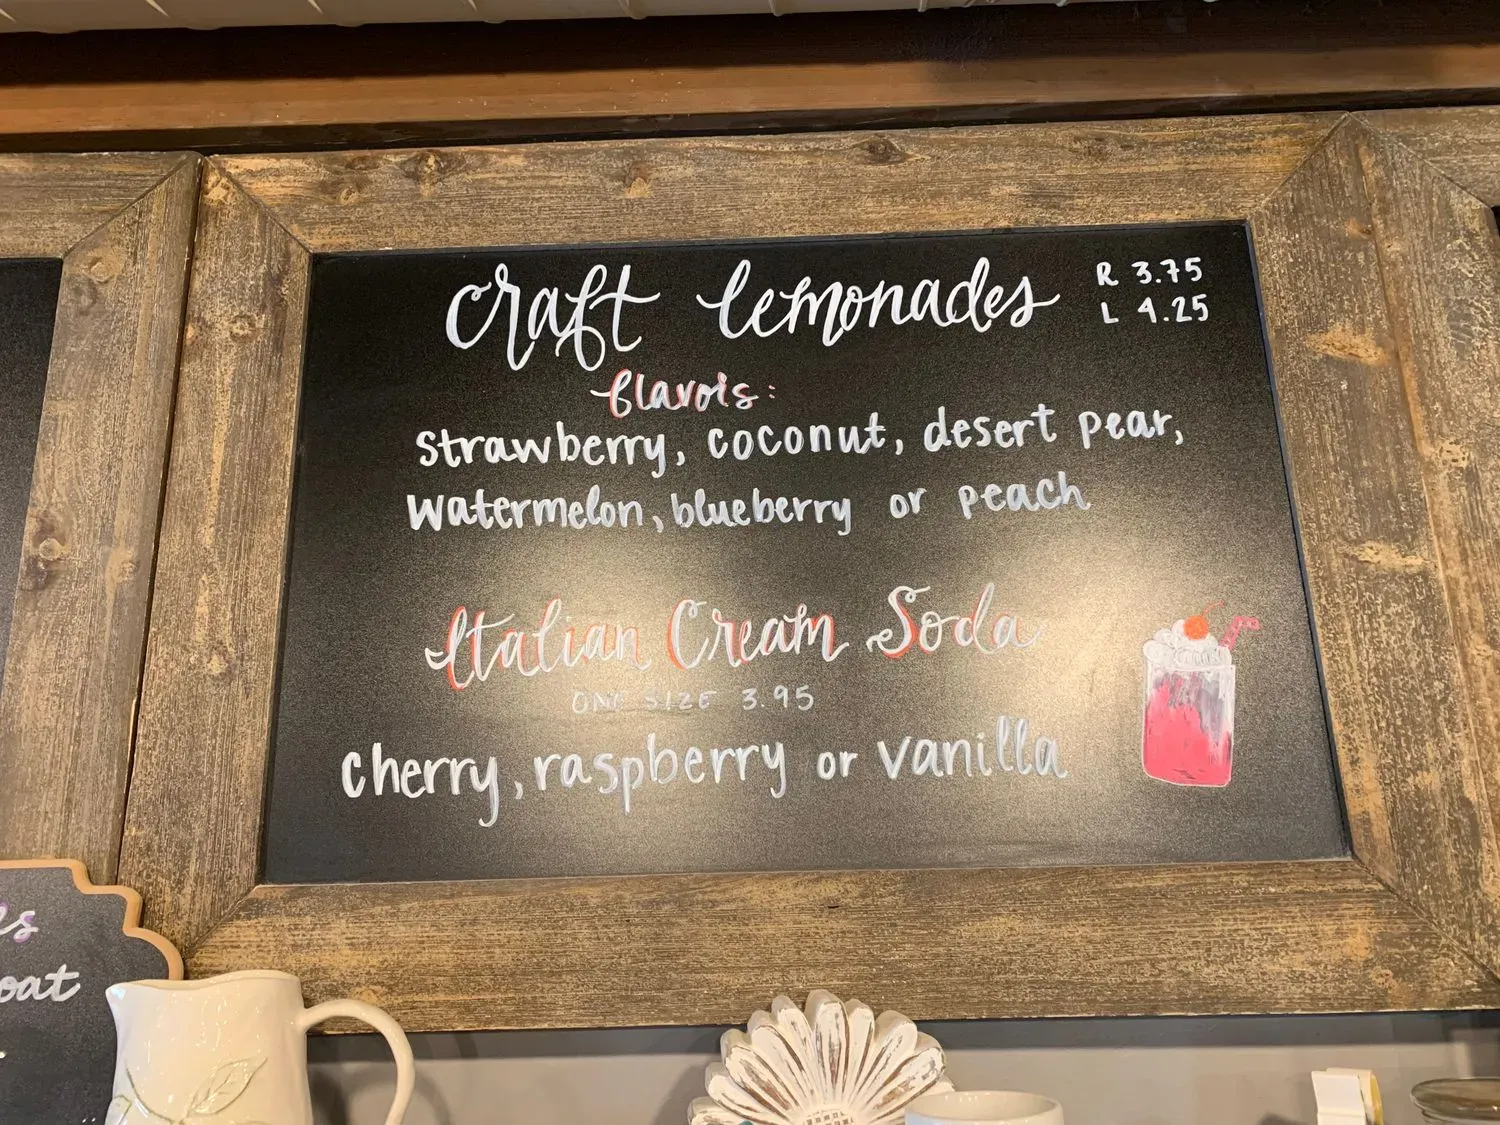 craft lemonades
R 3.75
L 4.25
flavors:
strawberry, coconut, desert pear,
watermelon, blueberry or peach
Italian Cream Soda
ONE SIZE 3.95
cherry, raspberry or vanilla